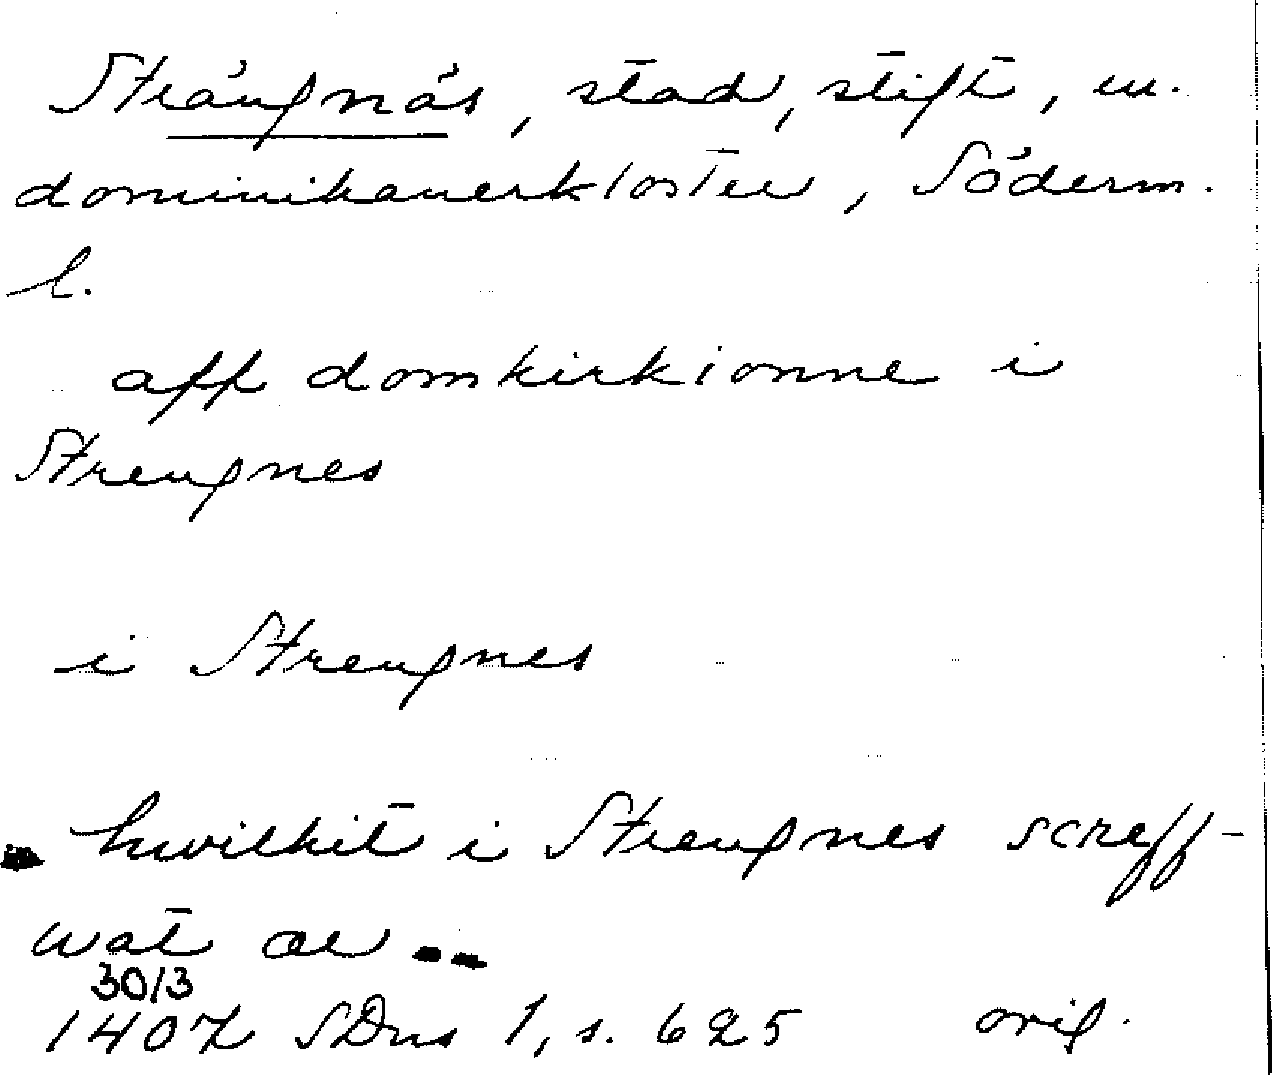 Strängnäs, stad, stift, m.
dominikanerkloster, Söderm.
l.
aff domkirkionne i
Strengnes
i Strengnes
hwilkit i Strengnes screff-
wat ær --
30/3
1407 SDns 1, s. 625 orig.